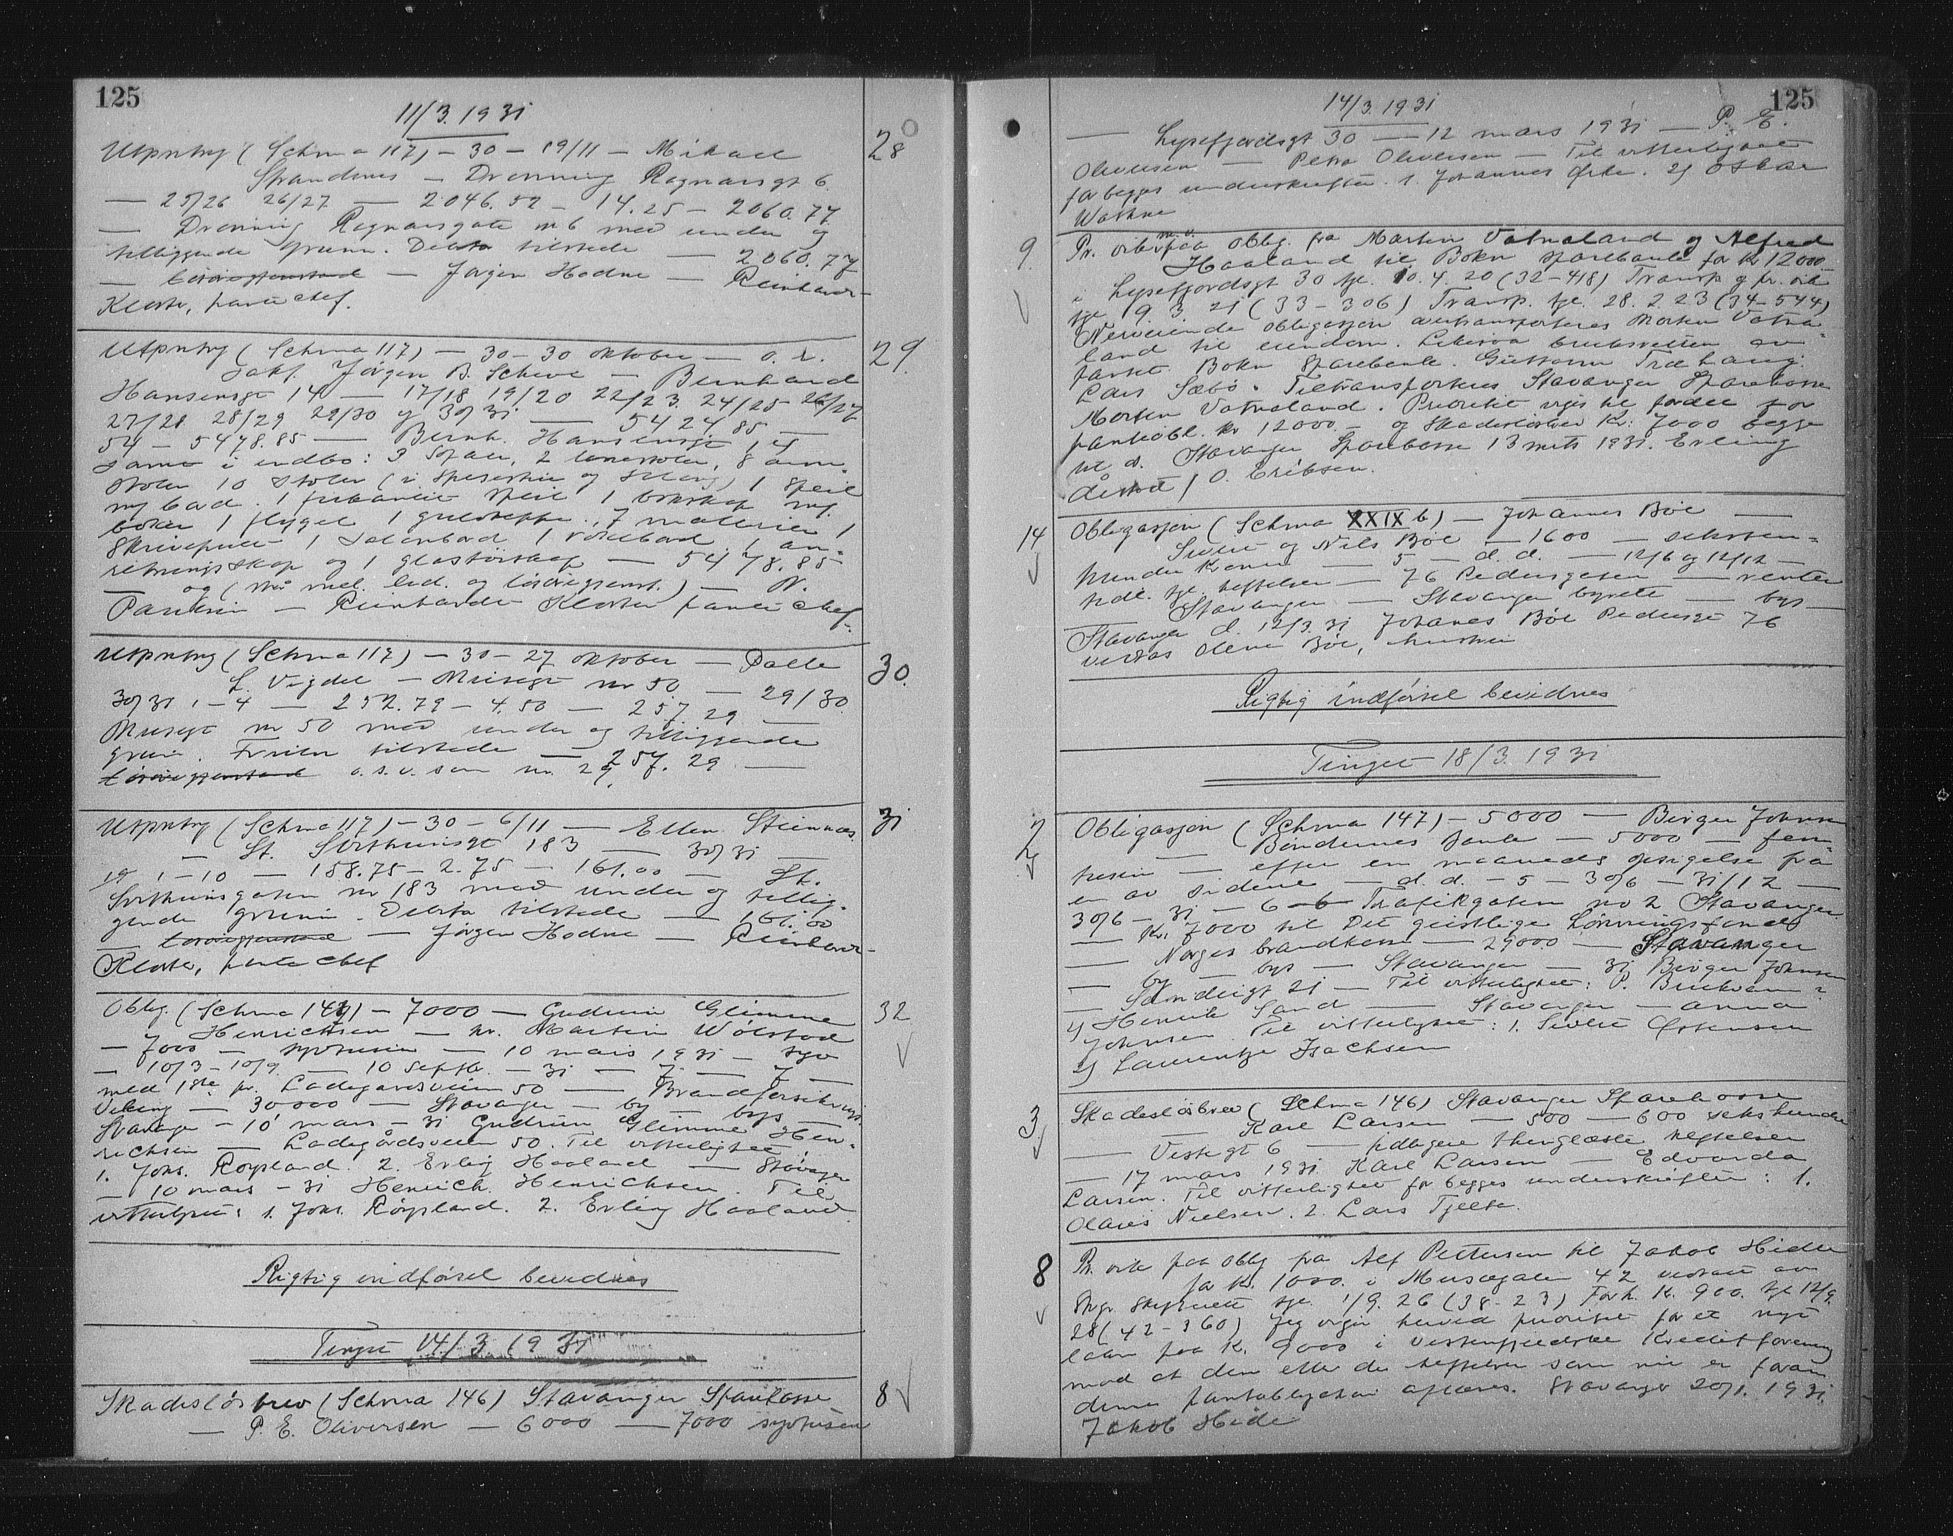 125
11/3. 1931
Utpntng (Schma 117) - 30 - 19/11 - Mikael 28
Strandnes - Dronning Ragnasgt 6.
- 25/26 26/27 - 2046.52 - 14.25 - 2060.77
- Dronning Ragnasgate nr 6 med under og
tilliggende grunn. Debtor tilstede - 2060.77
- Løsøregjenstand - Jørgen Hodne - Reinhardt
Kloster, pantechef.
Utpntng (Schma 117) - 30 - 30 oktober - o.r. 29.
sakf. Jørgen B. Scheve - Bernhard
Hansensgt 14 - 17/18 19/20 22/23 24/25 26/27
27/28 28/29 29/30 og 30/31 - 5424 85 -
54 - 5478.85 - Bernh. Hansensgt 14
samt i indbo: 3 sofaer, 2 lenestoler, 8 arm-
stoler 10 stoler (i spisestue og ) 1 speil
1 bord. 1 speil 1 bokskap m/
bøker 1 flygel 1 gulvteppe, 7 malerier 1
Skrivepult 1 salonbord 1 bord 1 an-
retningsskap og 1 glastøiskap - 5478.85
- og ( løsøregjenst.) - N.
Paulsen - Reinhardt Kloster pantechef.
Utpntng (Schma 117) - 30 - 27 oktober - Palle 30.
L. Vigdel - Musegt nr 50 - 29/30
30/31 1-4 - 252.79 - 4.50 - 257.29
Musegt nr 50 med under og tilliggende
grunn. Fruen tilstede - 257.29 -
Løsøregjenstand o.s.v. som nr. 29.
Utpntng (Schma 117) - 30 - 6/11 - Ellen Steinnæs 31
- St. Svithunsgt 183 - 30/31 -
1-10 - 158.75 - 2.75 - 161.00 - St.
Svithunsgaten nr 183 med under og tillig-
gende grunn. Debtor tilstede - 161.00
- Løsøregjenstand - Jørgen Hodne - Reinhardt
Kloster, pantechef
Oblig. (Schma 147) - 7000 - Gudrun Glimme 32
- Henrichsen - hr. Martin Wølstad
- 7000 - syvtusen - 10 mars 1931 - syv
- 10/3 - 10/9 - 10 septb. - 31 - 7 - 7 -
med 1ste pr. Ladegårdsveien 50 - Brandforsikrings
Viking - 30000 - Stavanger - by - bys
Stavanger - 10 mars - 31 Gudrun Glimme Hen-
richsen - Ladegårdsveien 50. Til vitterlighet
1. Johs. Røysland. 2. Erling Haaland - Stavanger
- 10 mars - 31 Henrich Henrichsen. Til
vitterlighet: 1. Johs. Røysland. 2. Erling Haaland
Rigtig indførsel bevidnes
Tinget 14/3 1931
Skadesløsbrev (Schma 146) Stavanger Sparekasse 8
- P. E. Oliversen - 6000 - 7000 syvtusen
125
14/3. 1931
- Lysefjordsgt 30 - 12 mars 1931 - P. E.
Oliversen - Petra Oliversen - Til vitterlighet
for begges underskrifter. 1. Johannes . 2) Oskar
Wathne
9. Pr. vik. m.v. paa oblig. fra Morten Vatnaland og Alfred
Haaland til Bokn Sparebank for Kr 12000
i Lysefjordsgt 30 tgl. 10.4.20 (32-418) Transp. og pr. vik
tgl 19.3.21 (33-306) Transp. tgl. 28.2.23 (34-544)
Nærværende obligasjon avertransporteres Morten Vatna-
land til eiendom. Likesaa av
Bokn Sparebank. Guttorm Trælhaug.
Lars Sæbø. Tiltransporteres Stavanger Sparekasse
Morten Vatnaland. Prioritet viges til fordel for
panteobl. kr 12000 - og skadesløsbrev Kr. 7000 begge
til d. Stavanger Sparekasse 13 mars 1931. Erling
/ O. Eriksen.
14 Obligasjon (Schma XXIX b) - Johannes Bøe -
Sivert og Nils Bøe - 1600 - seksten-
hundre Kroner - 5 - d.d. - 12/6 og 12/12 -
tgl. heftelser - 76 Pedersgaten - renter
Stavanger - Stavanger byrett - bys -
Stavanger d. 12/3.31 Johanes Bøe Pedersgt 76
vedtas Oline Bøe, hustru
Rigtig indførsel bevidnes
Tinget 18/3. 1931
2 Obligasjon (Schma 147) - 5000 - Birger Johnsen
- Bøndernes Bank - 5000 - fem-
tusen - efter en maaneds opsigelse fra
en av sidene - d.d. - 5 - 30/6 - 31/12 -
30/6 - 31 - 6 - 6 Trafikgaten no 2 Stavanger
- Kr. 7000 til Det geistlige Lønningsfond
- Norges brandkasse - 29000 - Stavanger
- by - bys - Stavanger - 31 Birger Johnsen
- Sandeigt 21 - Til vitterlighet: P.
2) Henrik Sand - Stavanger - Anna
Johnsen Til vitterlighet: 1. Sivert Østensen
2) Laurentze Isachsen
3 Skadesløsbrev (Schma 146) Stavanger Sparekasse
- Karl Larsen - 500 - 600 sekshundre
- Vestegt 6 - pdagere thinglæste heftelser
- 17 mars 1931 Karl Larsen - Edvarda
Larsen. Til vitterlighet for begges underskrifter: 1.
Olaves Nielsen. 2. Lars Tjelta.
8 Pr. vik paa oblig fra Alf Pettersen til Jakob Hidle
for Kr. 1000. i Musægaten 42 vedtatt av
Stvgr. Skifterett tgl. 1/9.26 (38-23) Forh. Kr. 900. tgl 12/9
28 (42-360) Jeg viger herved prioritet for et nytt
laan paa Kr. 9000 i Vestenfjeldske Kreditforening
mod at den eller de heftelser som nu er foran
denne pantobligation aflæses. Stavanger 20/1. 1931.
Jakob Hidle